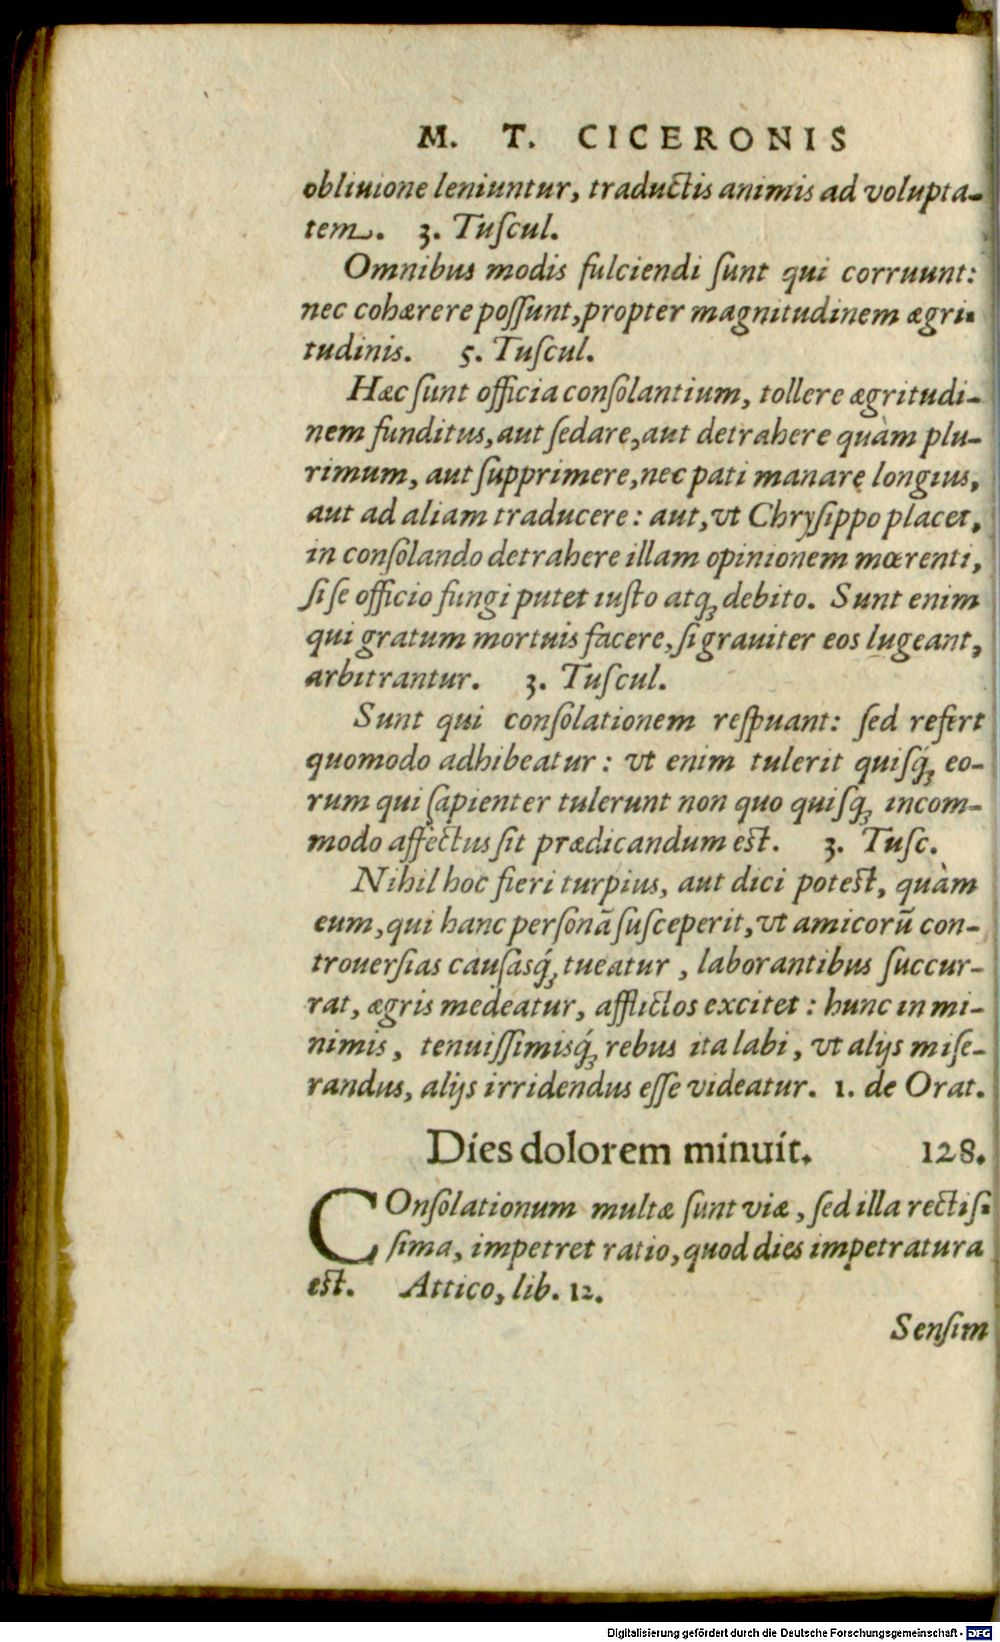 M. T. CICERONIS
obliuione leniuntur, traductis animis ad volupta-
tem. 3. Tuſcul.
Omnibus modis fulciendi ſunt qui corruunt:
nec cohærere poſſunt, propter magnitudinem ægri-
tudinis. 5. Tuſcul.
Hæc ſunt officia conſolantium, tollere ægritudi-
nem funditus, aut ſedare, aut detrahere quàm plu-
rimum, aut ſupprimere, nec pati manare longius,
aut ad aliam traducere: aut, vt Chryſippo placet,
in conſolando detrahere illam opinionem mœrenti,
ſi ſe officio fungi putet iuſto atq; debito. Sunt enim
qui gratum mortuis facere, ſi grauiter eos lugeant,
arbitrantur. 3. Tuſcul.
Sunt qui conſolationem reſpuant: ſed refert
quomodo adhibeatur: vt enim tulerit quiſq́; eo-
rum qui ſapienter tulerunt non quo quiſq; incom-
modo affectus ſit prædicandum est. 3. Tuſc.
Nihil hoc fieri turpius, aut dici potest, quàm
eum, qui hanc perſonā ſuſceperit, vt amicorū con-
trouerſias cauſasq́; tueatur, laborantibus ſuccur-
rat, ægris medeatur, afflictos excitet: hunc in mi-
nimis, tenuiſſimisq́; rebus ita labi, vt alijs miſe-
randus, alijs irridendus eſſe videatur. 1. de Orat.
Dies dolorem minuit. 128.
COnſolationum multæ ſunt viæ, ſed illa rectiſ-
ſima, impetret ratio, quod dies impetratura
est. Attico, lib. 12.
Senſim
Digitalisierung gefördert durch die Deutsche Forschungsgemeinschaft - DFG